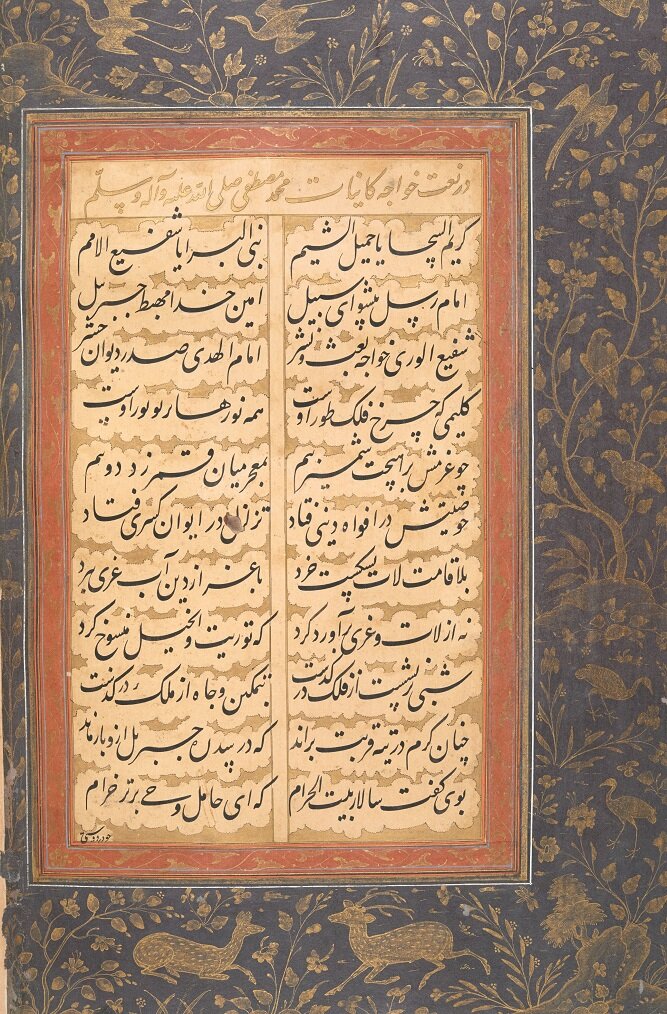 در نعت خواجه کاینات محمد مصطفی صلی الله علیه وآله وسلم
کریم السجایا جمیل الشیم نبی البرایا شفیع الامم
امام رسل پیشوای سبیل امین خدا مهبط جبریل
شفیع الوری خواجه بعث و نشر امام الهدی صدر دیوان حشر
کلیمی که چرخ فلک طور اوست همه نورها پرتو نور اوست
چو عزمش براهیخت شمشیر بیم بمعجز میان قمر زد دونیم
چو صیتش در افواه دنیی فتاد تزلزل در ایوان کسری فتاد
بلا قامت لات بشکست خرد باعزاز دین آب عزی ببرد
نه از لات و عزی برآورد کرد که توریت و انجیل منسوخ کرد
شبی برنشست از فلک در کذشت بتمکین و جاه از ملک در کذشت
چنان کرم در تیه قربت براند که در سدره جبریل ازو بازماند
بدوی کفت سالار بیت الحرام که ای حامل وحی برتر خرام
چو در دوستی